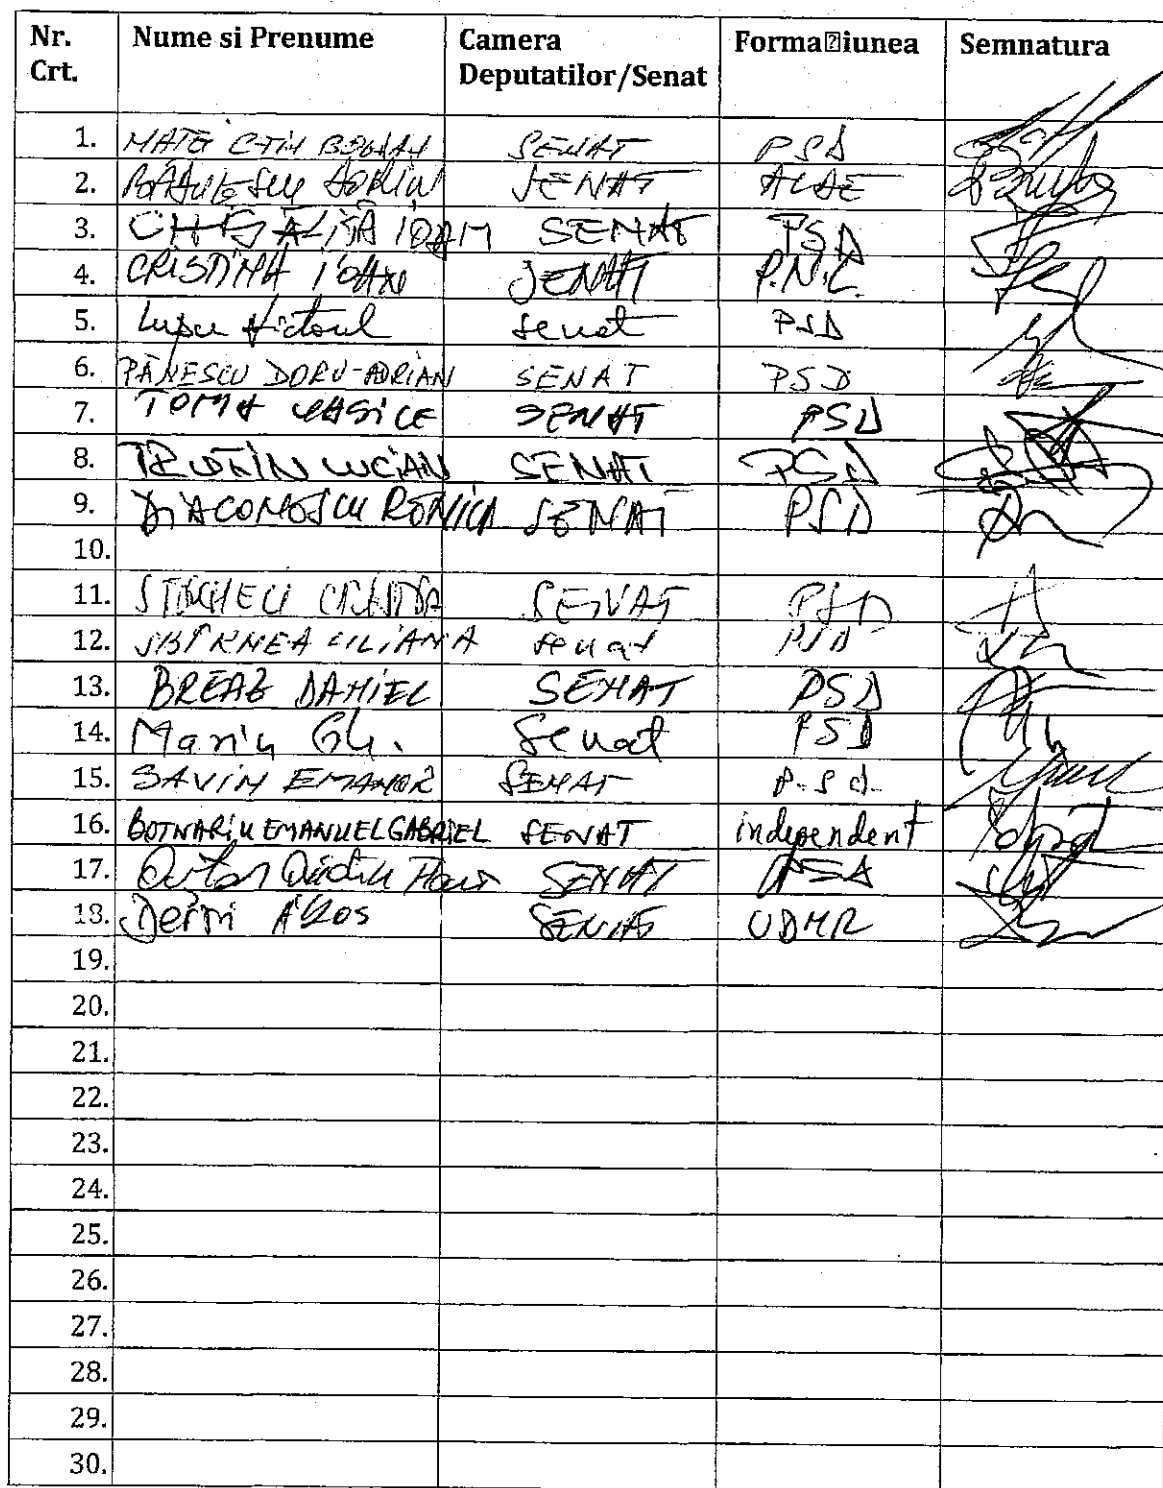 Nr. Crt. Nume si Prenume Camera Deputatilor/Senat Forma⍰iunea Semnatura
1. MATEI CTIN BOGDAN SENAT PSD
2. SENAT ALDE
3. CHIȘĂLIȚĂ IOAN SENAT PSD
4. CRISTINA IOAN SENAT P.N.L.
5. Lupu Victorel Senat PSD
6. PĂNESCU DORU-ADRIAN SENAT PSD
7. TOMA VASILE SENAT PSD
8. TROTIN LUCIAN SENAT PSD
9. DIACONESCU RENICA SENAT PSD
10.
11. STINCHELI CRISTINA SENAT PSD
12. SBÎRNEA LILIANA Senat PSD
13. BREAZ DANIEL SENAT PSD
14. Marin Gh. Senat PSD
15. SAVIN EMANOIL SENAT P.S.D.
16. BOTNARIU EMANUEL GABRIEL SENAT independent
17. SENAT PSD
18. Derzsi Ákos SENAT UDMR
19.
20.
21.
22.
23.
24.
25.
26.
27.
28.
29.
30.